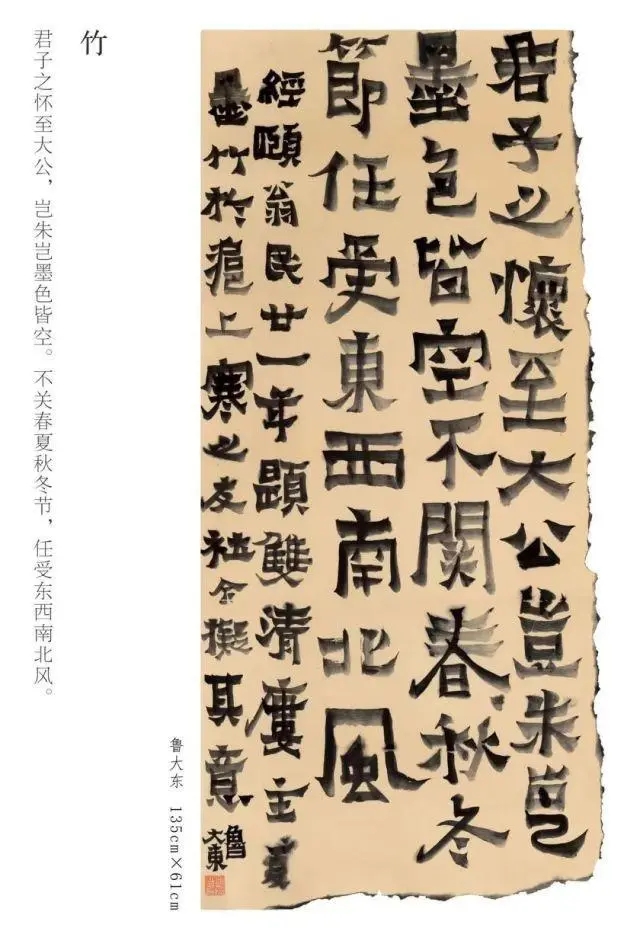 竹
君子之怀至大公，岂朱岂墨色皆空。不关春夏秋冬节，任受东西南北风。
君子之懷至大公豈朱岂
墨色皆空不關春秋冬
節任受東西南北風
經頤翁民廿一年題雙清廔主畫
墨竹於滬上寒之友社今擬其意
魯大東
鲁大东 135cm×61cm